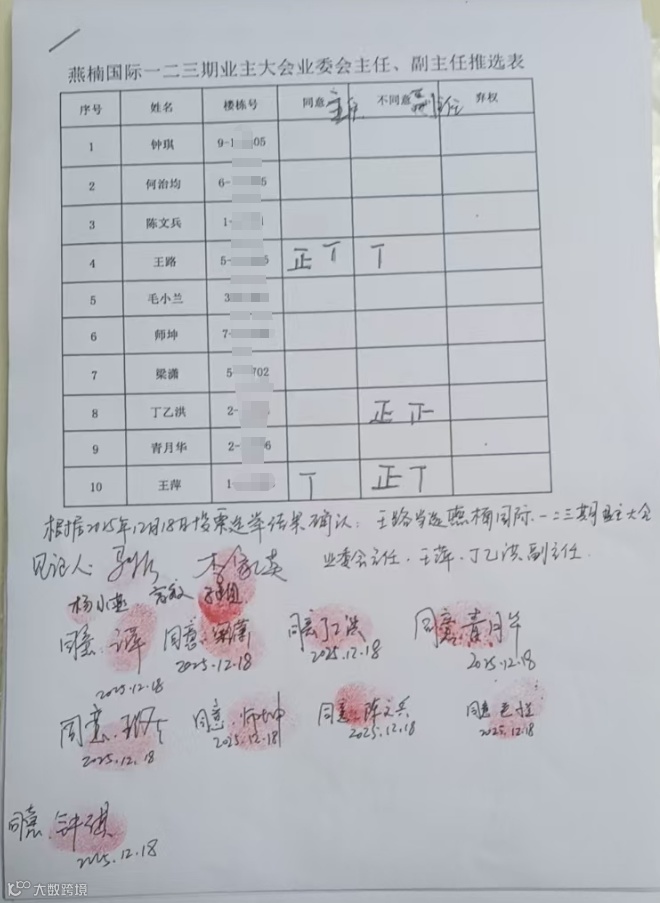 燕楠国际一二三期业主大会业委会主任、副主任推选表
序号 姓名 楼栋号 同意 主任 不同意 副主任 弃权
1 钟琪 9-1 05
2 何治均 6- 5
3 陈文兵 1-
4 王路 5- 5 正丅 丅
5 毛小兰 3
6 师坤 7-
7 梁潇 5- 702
8 丁乙洪 2- 正正
9 青月华 2- 6
10 王萍 1- 丅 正丅
根据2025年12月18日投票选举结果确认：王路当选燕楠国际一二三期业主大会
业委会主任，王萍、丁乙洪副主任.
见证人：
杨小燕
同意：王萍 同意：梁潇 同意：丁乙洪 同意：青月华
2025.12.18 2025.12.18 2025.12.18 2025.12.18
同意：王路 同意：师坤 同意：陈文兵 同意
2025.12.18 2025.12.18 2025.12.18 2025.12.18
同意：钟琪
2025.12.18
大数跨境